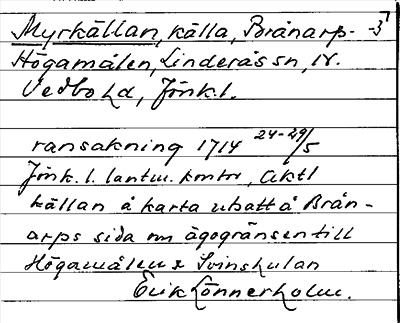 Myrkällan, källa, Brånarp. -3
Högamålen, Linderås sn, N.
Vedbo hd, Jönk.l.
ransakning 1714 24-29/5
Jönk. l. lantm. kontor, Akt 1
källan å karta utsatt å Brån-
arps sida om ägogränsen till
Högamålen & Svinskulan
Erik Lönnerholm.